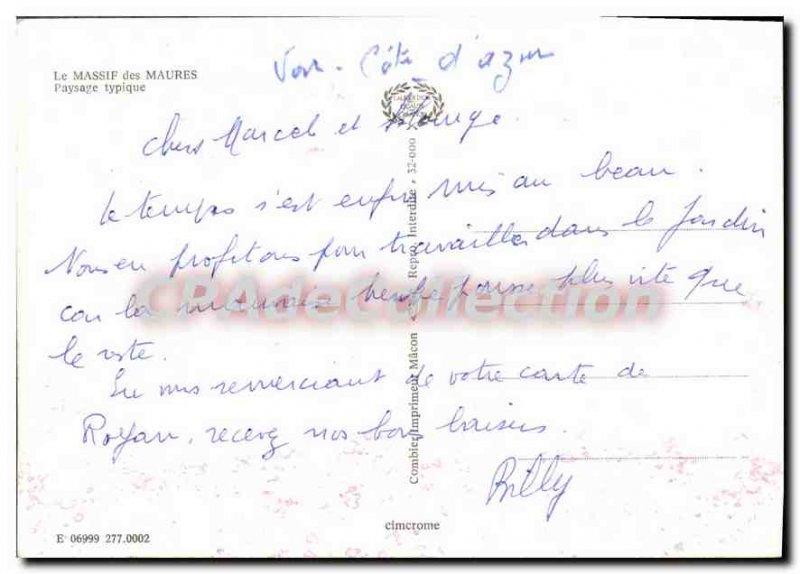 Var - Côte d'azur
Le MASSIF des MAURES
Paysage typique
Chers Marcel et
Le temps s'est enfin mis au beau.
Nous en profitons pour travailler dans le jardin
car la mauvaise herbe pousse plus vite que
le reste.
En vous remerciant de votre carte de
Royan, recevez nos bons baisers.
Billy
Combier Imprimeur Mâcon - Repro. Interdite - 32-000
CPAdeCollection
cimcrome
E 06999 277.0002